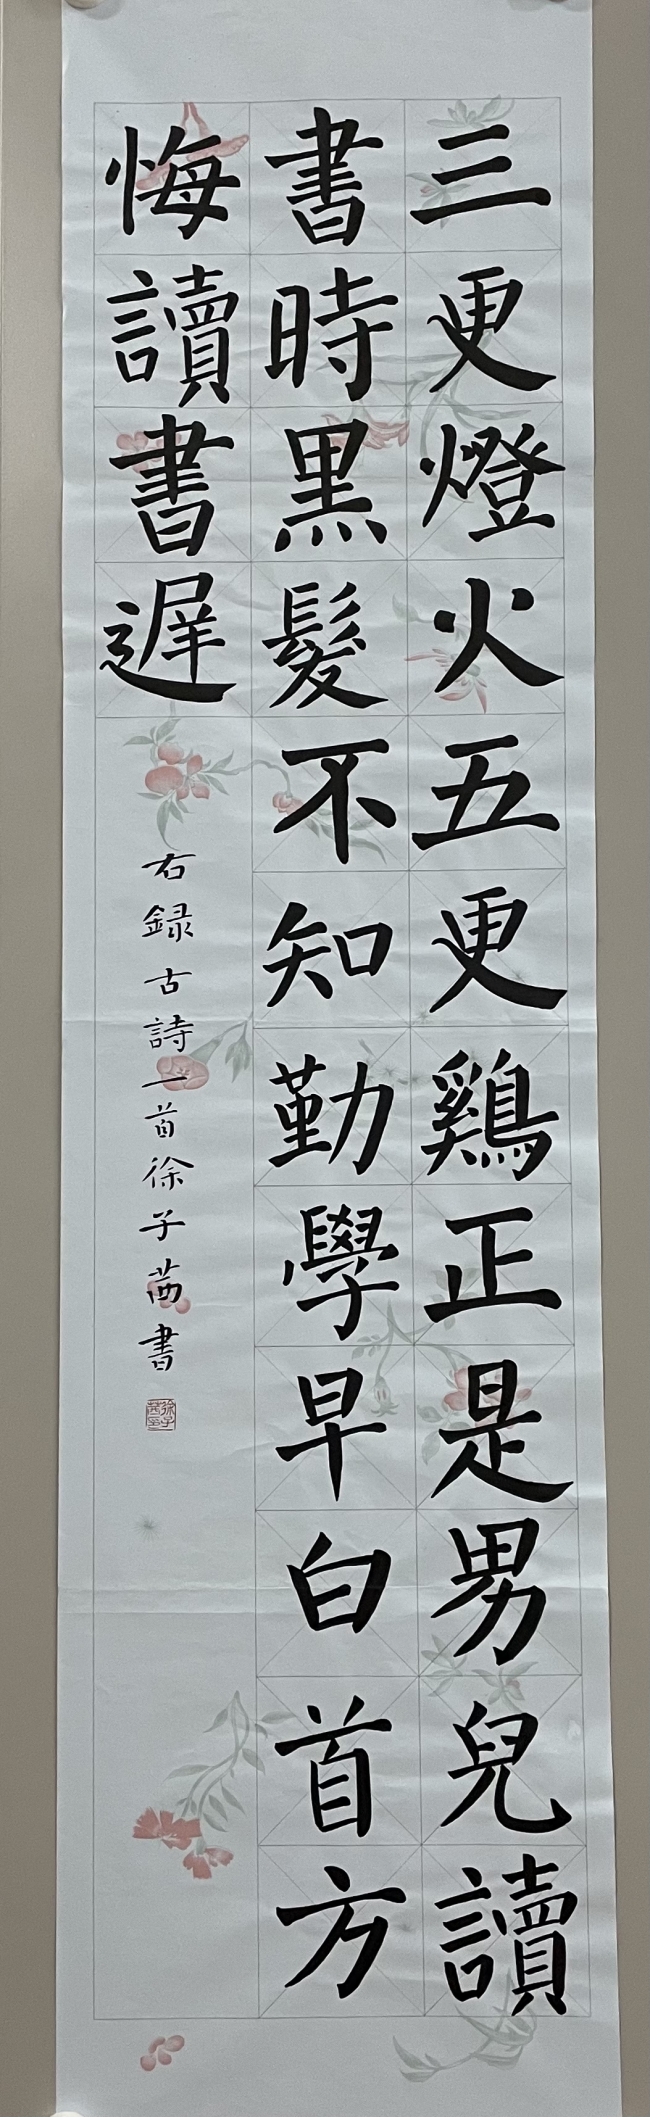 三更燈火五更鷄正是男兒讀
書時黑髮不知勤學早白首方
悔讀書遲
右録古詩一首徐子茜書
徐子茜印